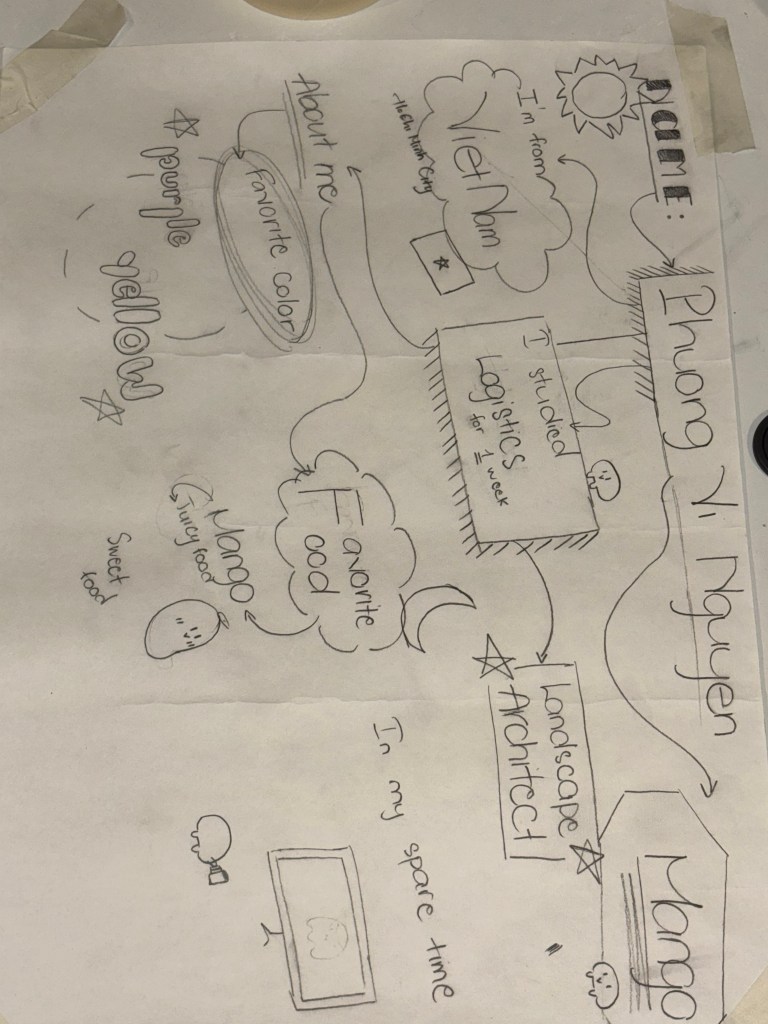 Name:
Phuong Vi Nguyen
Mango
I'm from
VietNam
-Ho Chi Minh City
I studied
Logistics
for 1 week
Landscape
Architect
About me
Favorite color
purple
yellow
Favorite
Food
Mango
Juicy food
Sweet
food
In my spare time